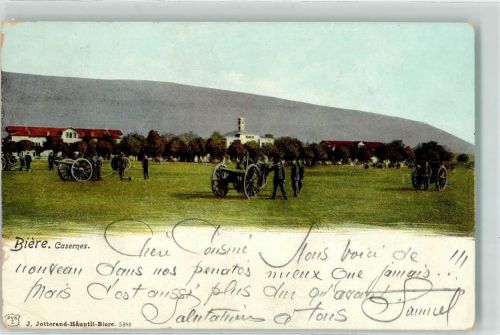 Bière. Casernes.
Cher Cousin! Nous voici de
nouveau dans nos penates mieux que jamais...!!!
Mais c'est aussi plus dur qu'avant
Salutations à tous Samuel
J. Jotterand-Häuptli-Biere. 5840